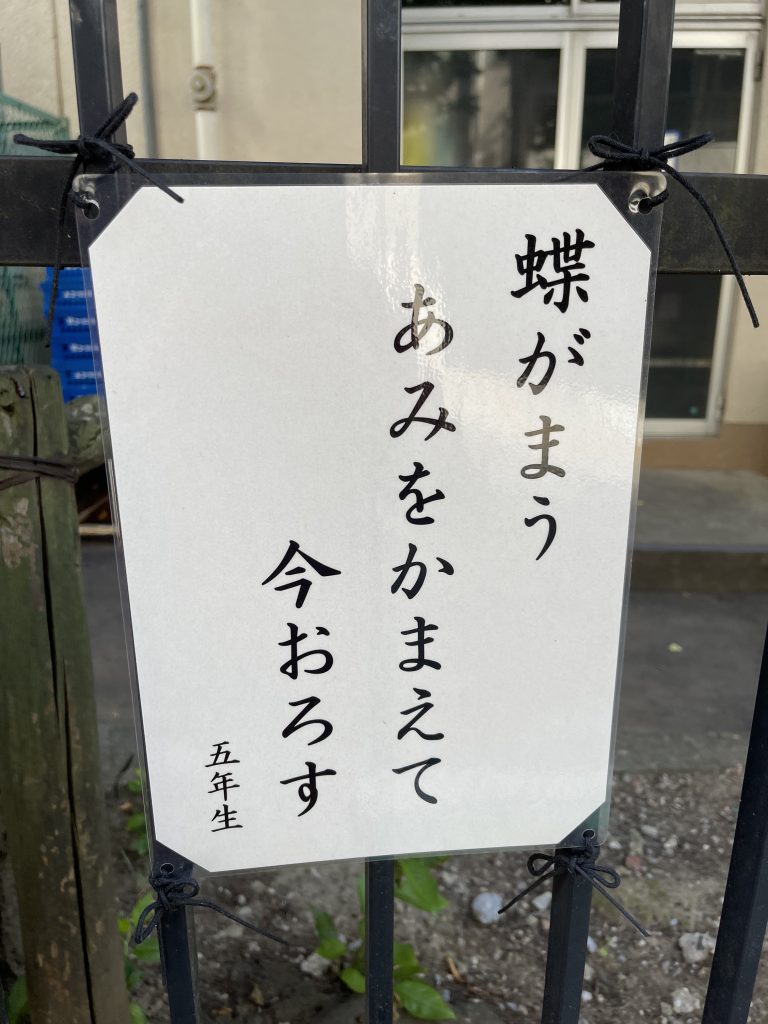 蝶がまう
あみをかまえて
今おろす
五年生